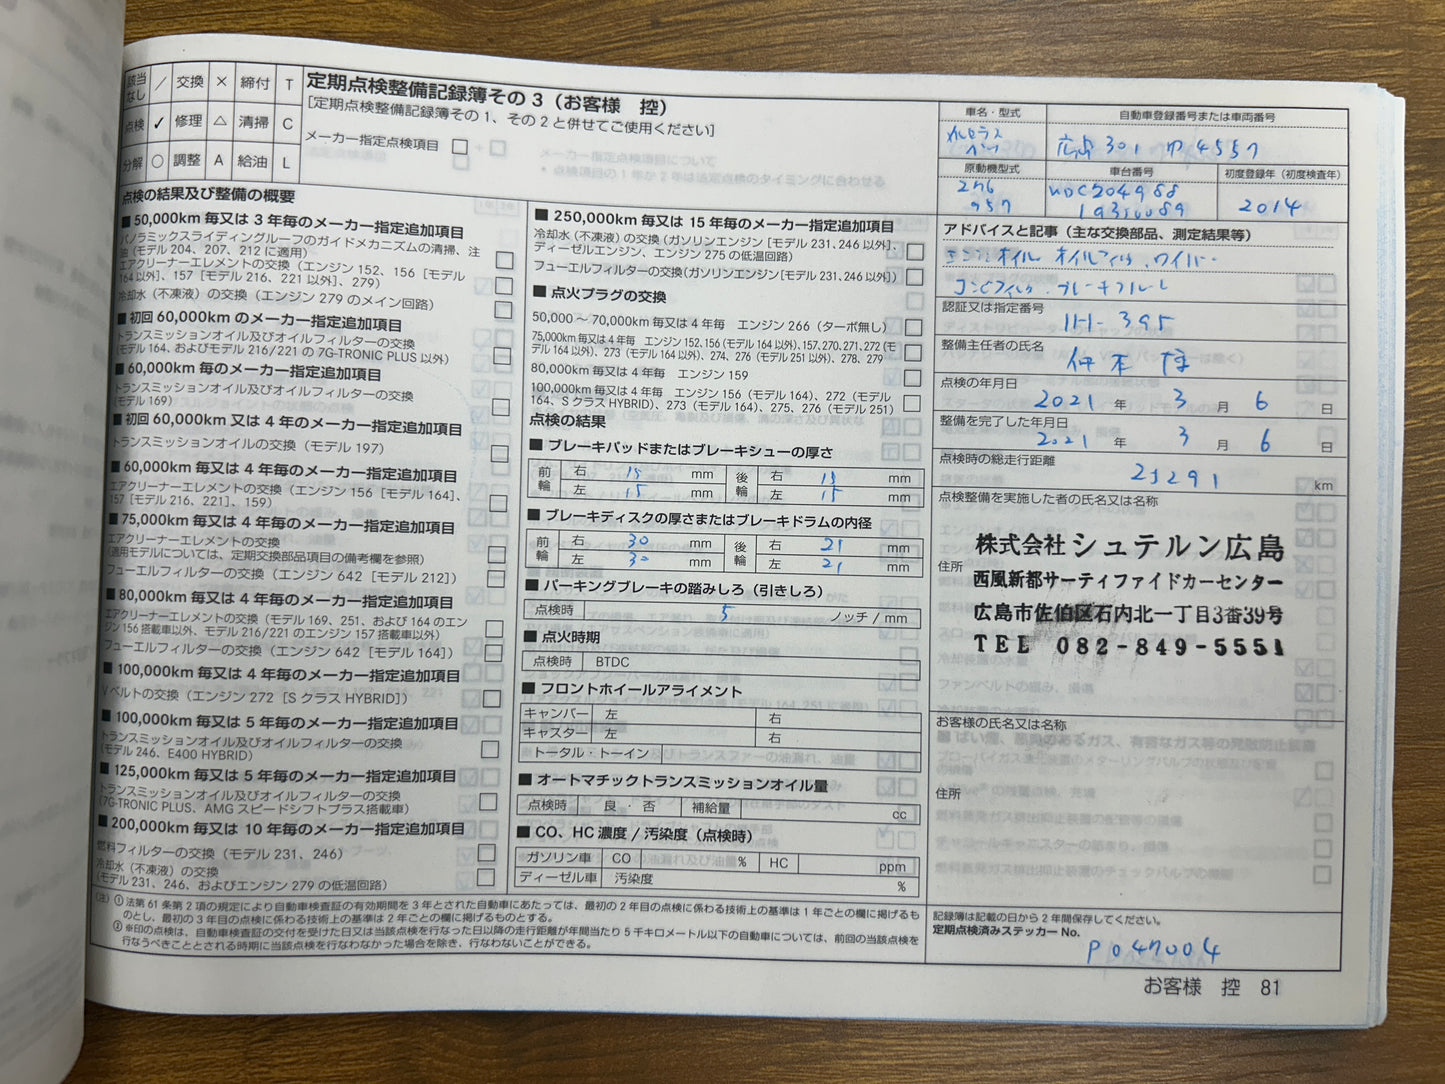 該当なし ／ 交換 × 締付 T
点検 ✓ 修理 △ 清掃 C
分解 ○ 調整 A 給油 L
定期点検整備記録簿その3（お客様　控）
［定期点検整備記録簿その1、その2と併せてご使用ください］
メーカー指定点検項目 □ + □
点検の結果及び整備の概要
■ 50,000km 毎又は 3 年毎のメーカー指定追加項目
パノラミックスライディングルーフのガイドメカニズムの清掃、注
油（モデル 204、207、212 に適用）
エアクリーナーエレメントの交換（エンジン 152、156［モデル
164 以外］、157［モデル 216、221 以外］、279）
冷却水（不凍液）の交換（エンジン 279 のメイン回路）
■ 初回 60,000km のメーカー指定追加項目
トランスミッションオイル及びオイルフィルターの交換
（モデル 164、およびモデル 216/221 の 7G-TRONIC PLUS 以外）
■ 60,000km 毎のメーカー指定追加項目
トランスミッションオイル及びオイルフィルターの交換
（モデル 169）
■ 初回 60,000km 又は 4 年毎のメーカー指定追加項目
トランスミッションオイルの交換（モデル 197）
■ 60,000km 毎又は 4 年毎のメーカー指定追加項目
エアクリーナーエレメントの交換（エンジン 156［モデル 164］、
157［モデル 216、221］、159）
■ 75,000km 毎又は 4 年毎のメーカー指定追加項目
エアクリーナーエレメントの交換
（適用モデルについては、定期交換部品項目の備考欄を参照）
フューエルフィルターの交換（エンジン 642［モデル 212］）
■ 80,000km 毎又は 4 年毎のメーカー指定追加項目
エアクリーナーエレメントの交換（モデル 169、251、および 164 のエン
ジン 156 搭載車以外、モデル 216/221 のエンジン 157 搭載車以外）
フューエルフィルターの交換（エンジン 642［モデル 164］）
■ 100,000km 毎又は 4 年毎のメーカー指定追加項目
V ベルトの交換（エンジン 272［S クラス HYBRID］）
■ 100,000km 毎又は 5 年毎のメーカー指定追加項目
トランスミッションオイル及びオイルフィルターの交換
（モデル 246、E400 HYBRID）
■ 125,000km 毎又は 5 年毎のメーカー指定追加項目
トランスミッションオイル及びオイルフィルターの交換
（7G-TRONIC PLUS、AMG スピードシフトプラス搭載車）
■ 200,000km 毎又は 10 年毎のメーカー指定追加項目
燃料フィルターの交換（モデル 231、246）
冷却水（不凍液）の交換
（モデル 231、246、およびエンジン 279 の低温回路）
■ 250,000km 毎又は 15 年毎のメーカー指定追加項目
冷却水（不凍液）の交換（ガソリンエンジン［モデル 231、246 以外］、
ディーゼルエンジン、エンジン 275 の低温回路）
フューエルフィルターの交換（ガソリンエンジン［モデル 231、246 以外］）
■ 点火プラグの交換
50,000 ～ 70,000km 毎又は 4 年毎　エンジン 266（ターボ無し）
75,000km 毎又は 4 年毎　エンジン 152、156（モデル 164 以外）、157、270、271、272（モ
デル 164 以外）、273（モデル 164 以外）、274、276（モデル 251 以外）、278、279
80,000km 毎又は 4 年毎　エンジン 159
100,000km 毎又は 4 年毎　エンジン 156（モデル 164）、272（モデル
164、S クラス HYBRID）、273（モデル 164）、275、276（モデル 251）
点検の結果
■ ブレーキパッドまたはブレーキシューの厚さ
前輪 右 15 mm 後輪 右 15 mm
左 15 mm 左 15 mm
■ ブレーキディスクの厚さまたはブレーキドラムの内径
前輪 右 30 mm 後輪 右 21 mm
左 30 mm 左 21 mm
■ パーキングブレーキの踏みしろ（引きしろ）
点検時 5 ノッチ / mm
■ 点火時期
点検時 BTDC
■ フロントホイールアライメント
キャンバー 左 右
キャスター 左 右
トータル・トーイン
■ オートマチックトランスミッションオイル量
点検時 良 ． 否 補給量 cc
■ CO、HC 濃度 / 汚染度（点検時）
ガソリン車 CO % HC ppm
ディーゼル車 汚染度 %
車名・型式
自動車登録番号または車両番号
広島 301 4557
原動機型式
車台番号
初度登録年（初度検査年）
276
957
WDC204988
1G350089
2014
アドバイスと記事（主な交換部品、測定結果等）
エンジンオイル オイルフィルター、ワイパー
コンビフィルター、ブレーキフルード
認証又は指定番号
11-1-395
整備主任者の氏名
点検の年月日
2021 年 3 月 6 日
整備を完了した年月日
2021 年 3 月 6 日
点検時の総走行距離
25291 km
点検整備を実施した者の氏名又は名称
株式会社 シュテルン広島
住所
西風新都サーティファイドカーセンター
広島市佐伯区石内北一丁目3番39号
TEL 082-849-5551
お客様の氏名又は名称
住所
（注）① 法第 61 条第 2 項の規定により自動車検査証の有効期間を 3 年とされた自動車にあたっては、最初の 2 年目の点検に係わる技術上の基準は 1 年ごとの欄に掲げるも
のとし、最初の 3 年目の点検に係わる技術上の基準は 2 年ごとの欄に掲げるものとする。
② ※印の点検は、自動車検査証の交付を受けた日又は当該点検を行なった日以降の走行距離が年間当たり 5 千キロメートル以下の自動車については、前回の当該点検を
行なうべきこととされる時期に当該点検を行なわなかった場合を除き、行なわないことができる。
記録簿は記載の日から 2 年間保存してください。
定期点検済みステッカー No.
P047004
お客様　控　81